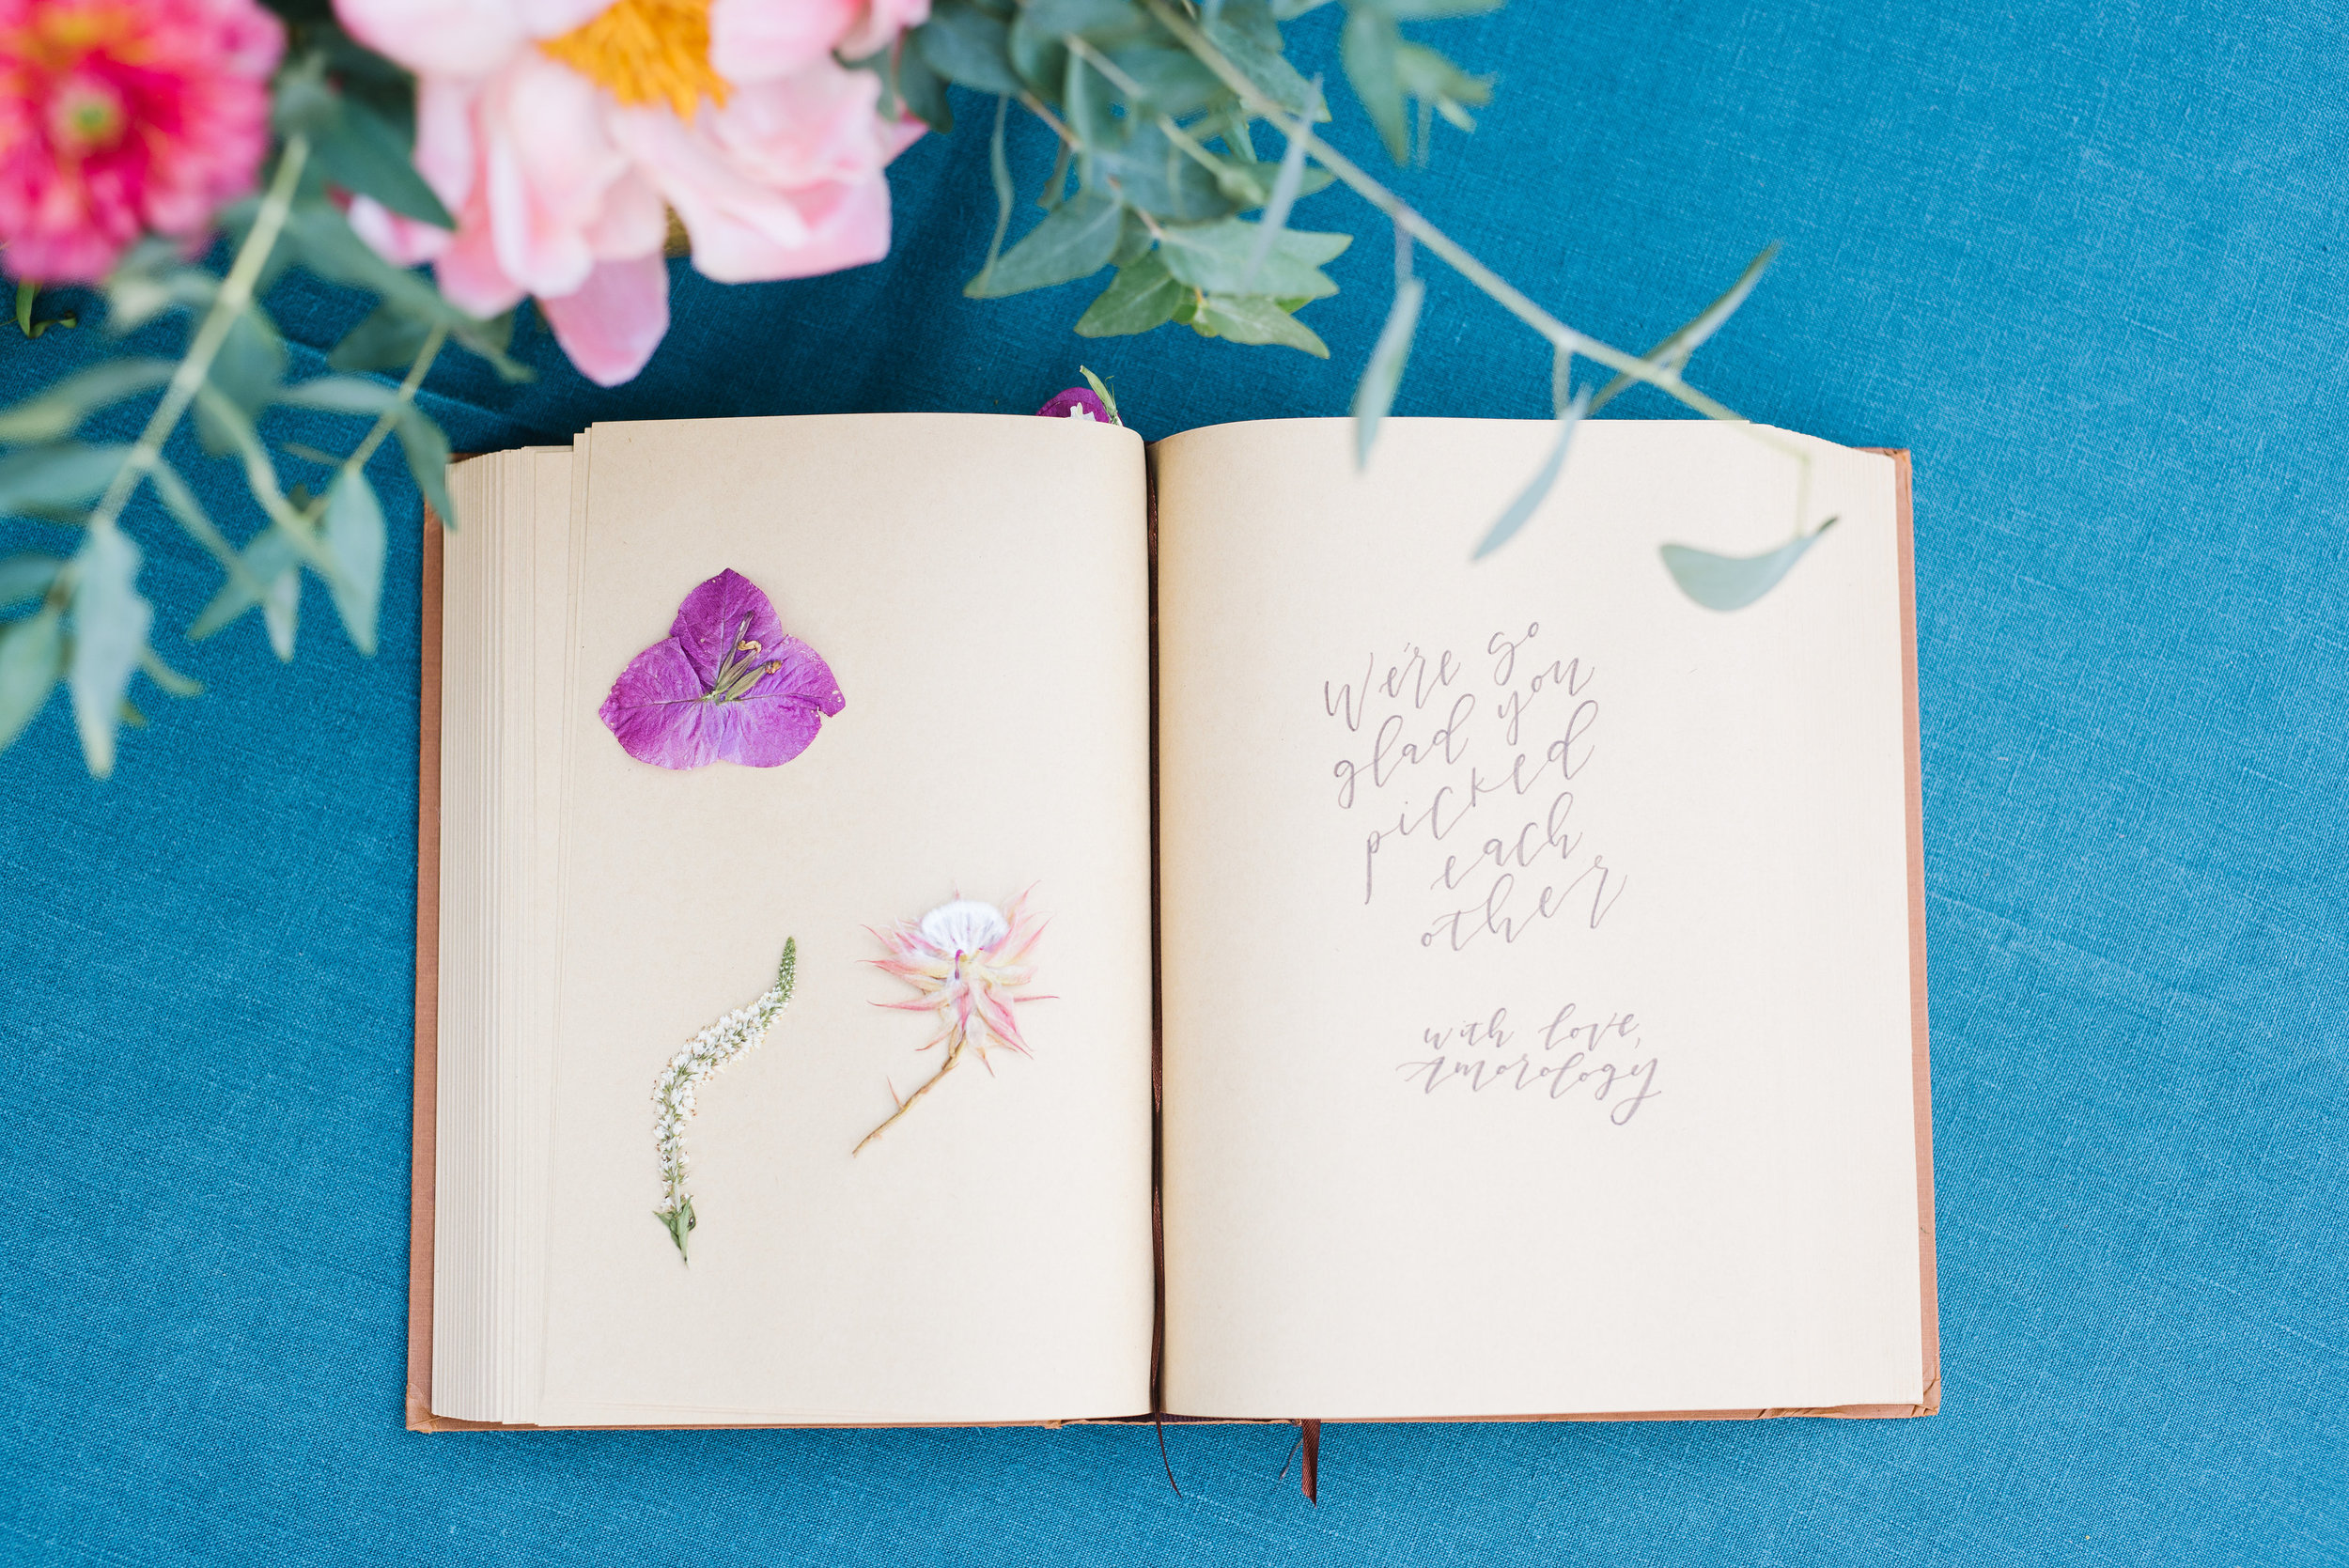 We're so
glad you
picked
each
other
with love,
Amorology